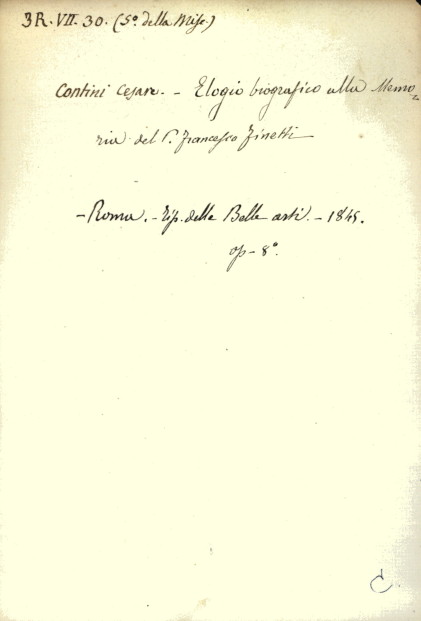 3R. VII. 30. (5º della Misc.)
Contini Cesare. - Elogio biografico alla Memo-
ria del P. Francesco Finetti
- Roma. - Tip. delle Belle arti. - 1845.
op - 8º.
C.